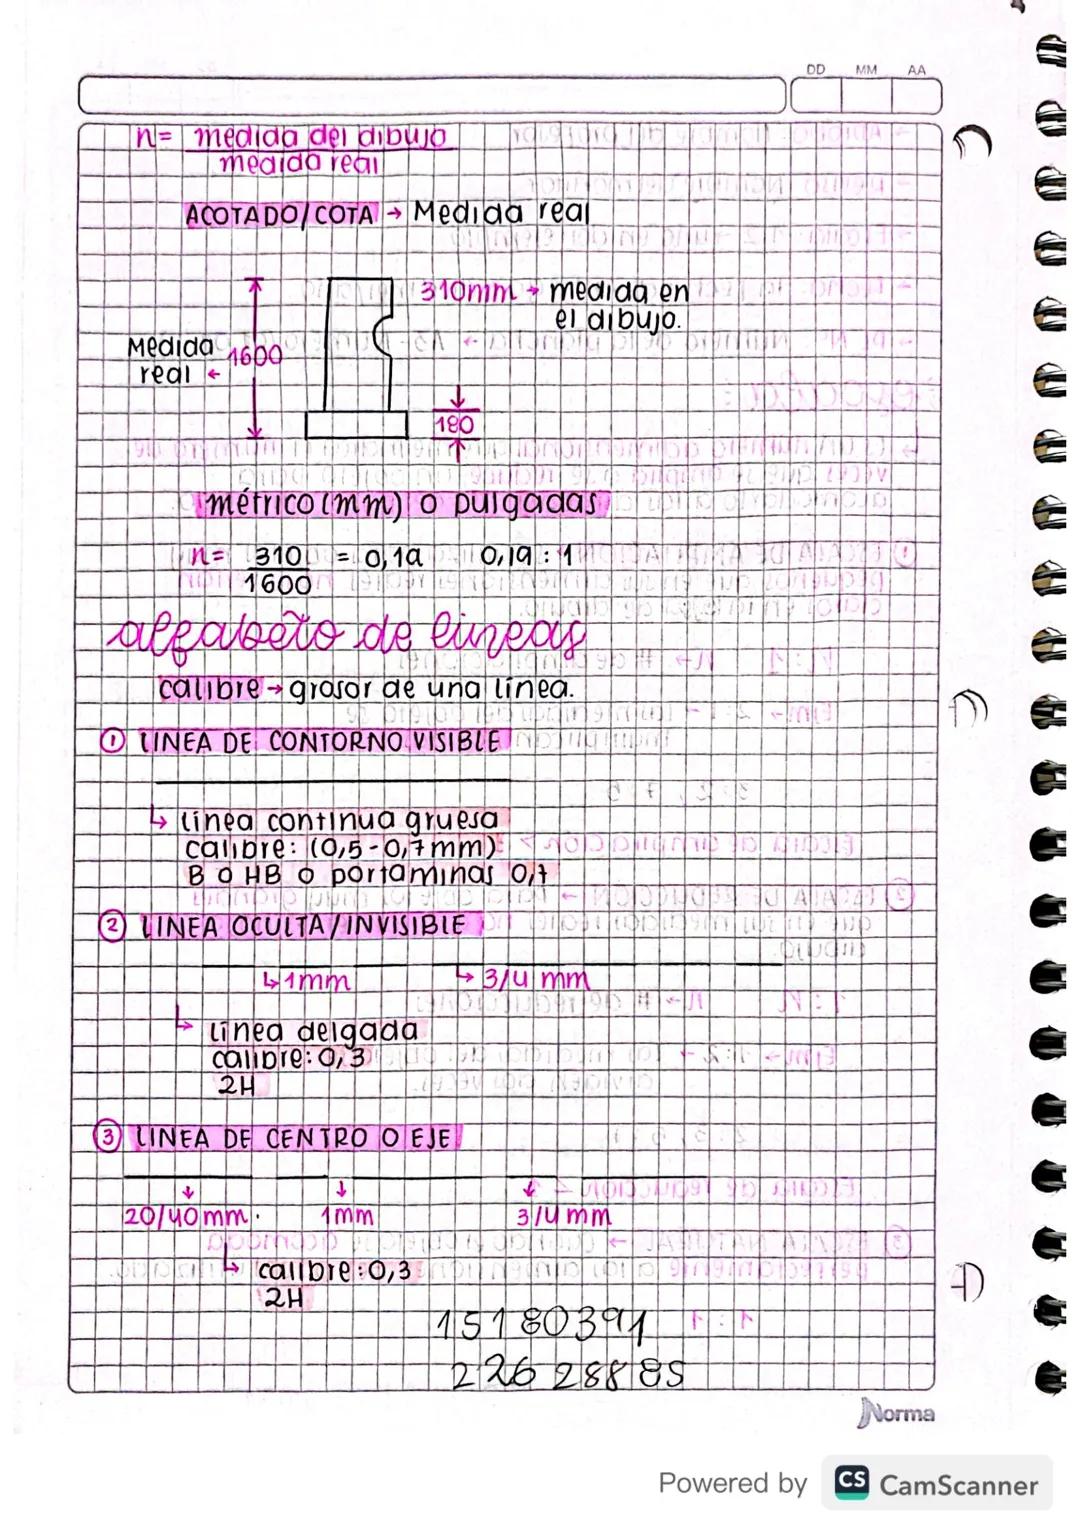 DD MM AA
n= medida del dibujo
medida real
ACOTADO/COTA → Medida real
310mm → medida en
el dibujo.
Medida
real ←
1600
180
métrico (mm) o pulgadas
n= 310 = 0,19 0,19 : 1
1600
alfabeto de lineas
calibre → grosor de una línea.
① LINEA DE CONTORNO VISIBLE
↳ línea continua gruesa
calibre: (0,5-0,7mm)
B o HB o portaminas 0,7
② LINEA OCULTA/INVISIBLE
↳ 1mm ↳ 3/4 mm
↳ línea delgada
calibre: 0,3
2H
③ LINEA DE CENTRO O EJE
20/40mm. 1mm 3/4 mm
↳ calibre: 0,3
2H
15180391
22628885
Norma
Powered by CS CamScanner